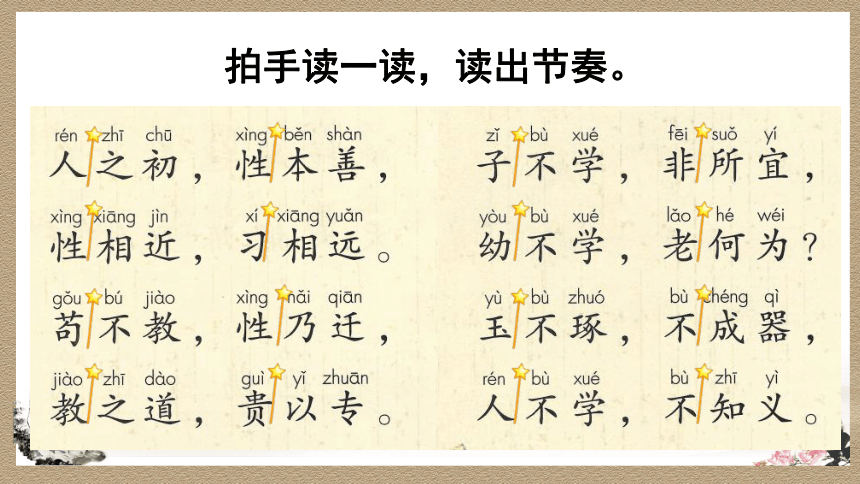 拍手读一读，读出节奏。
rén zhī chū xìng běn shàn
人之初，性本善，
xìng xiāng jìn xí xiāng yuǎn
性相近，习相远。
gǒu bú jiào xìng nǎi qiān
苟不教，性乃迁，
jiào zhī dào guì yǐ zhuān
教之道，贵以专。
zǐ bù xué fēi suǒ yí
子不学，非所宜，
yòu bù xué lǎo hé wéi
幼不学，老何为？
yù bù zhuó bù chéng qì
玉不琢，不成器，
rén bù xué bù zhī yì
人不学，不知义。